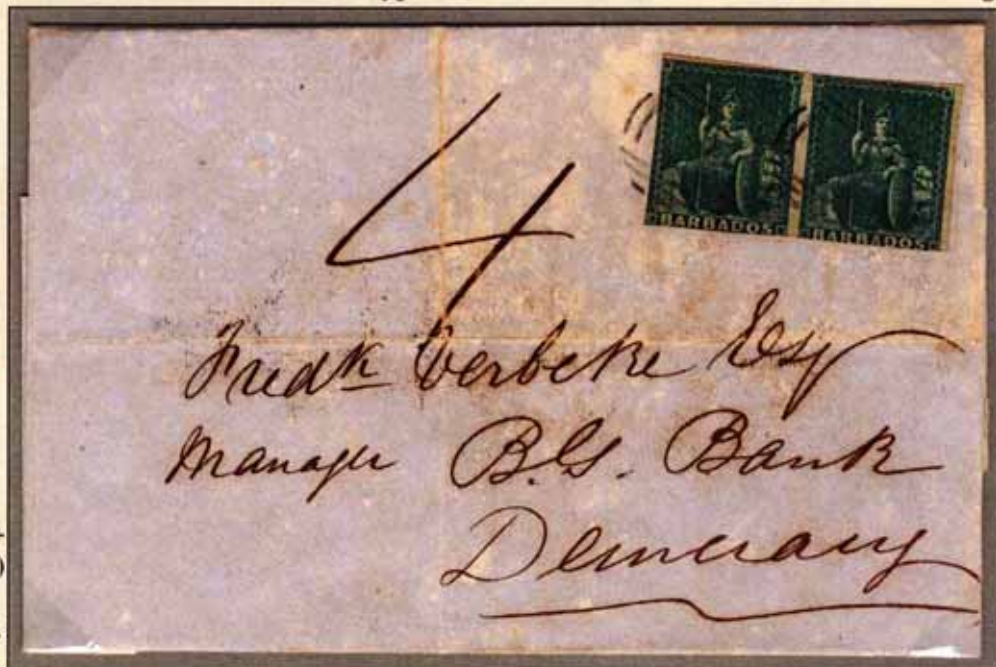 BARBADOS BARBADOS
4
Fredk Verbeke Esq
Manager B.G. Bank
Demerary